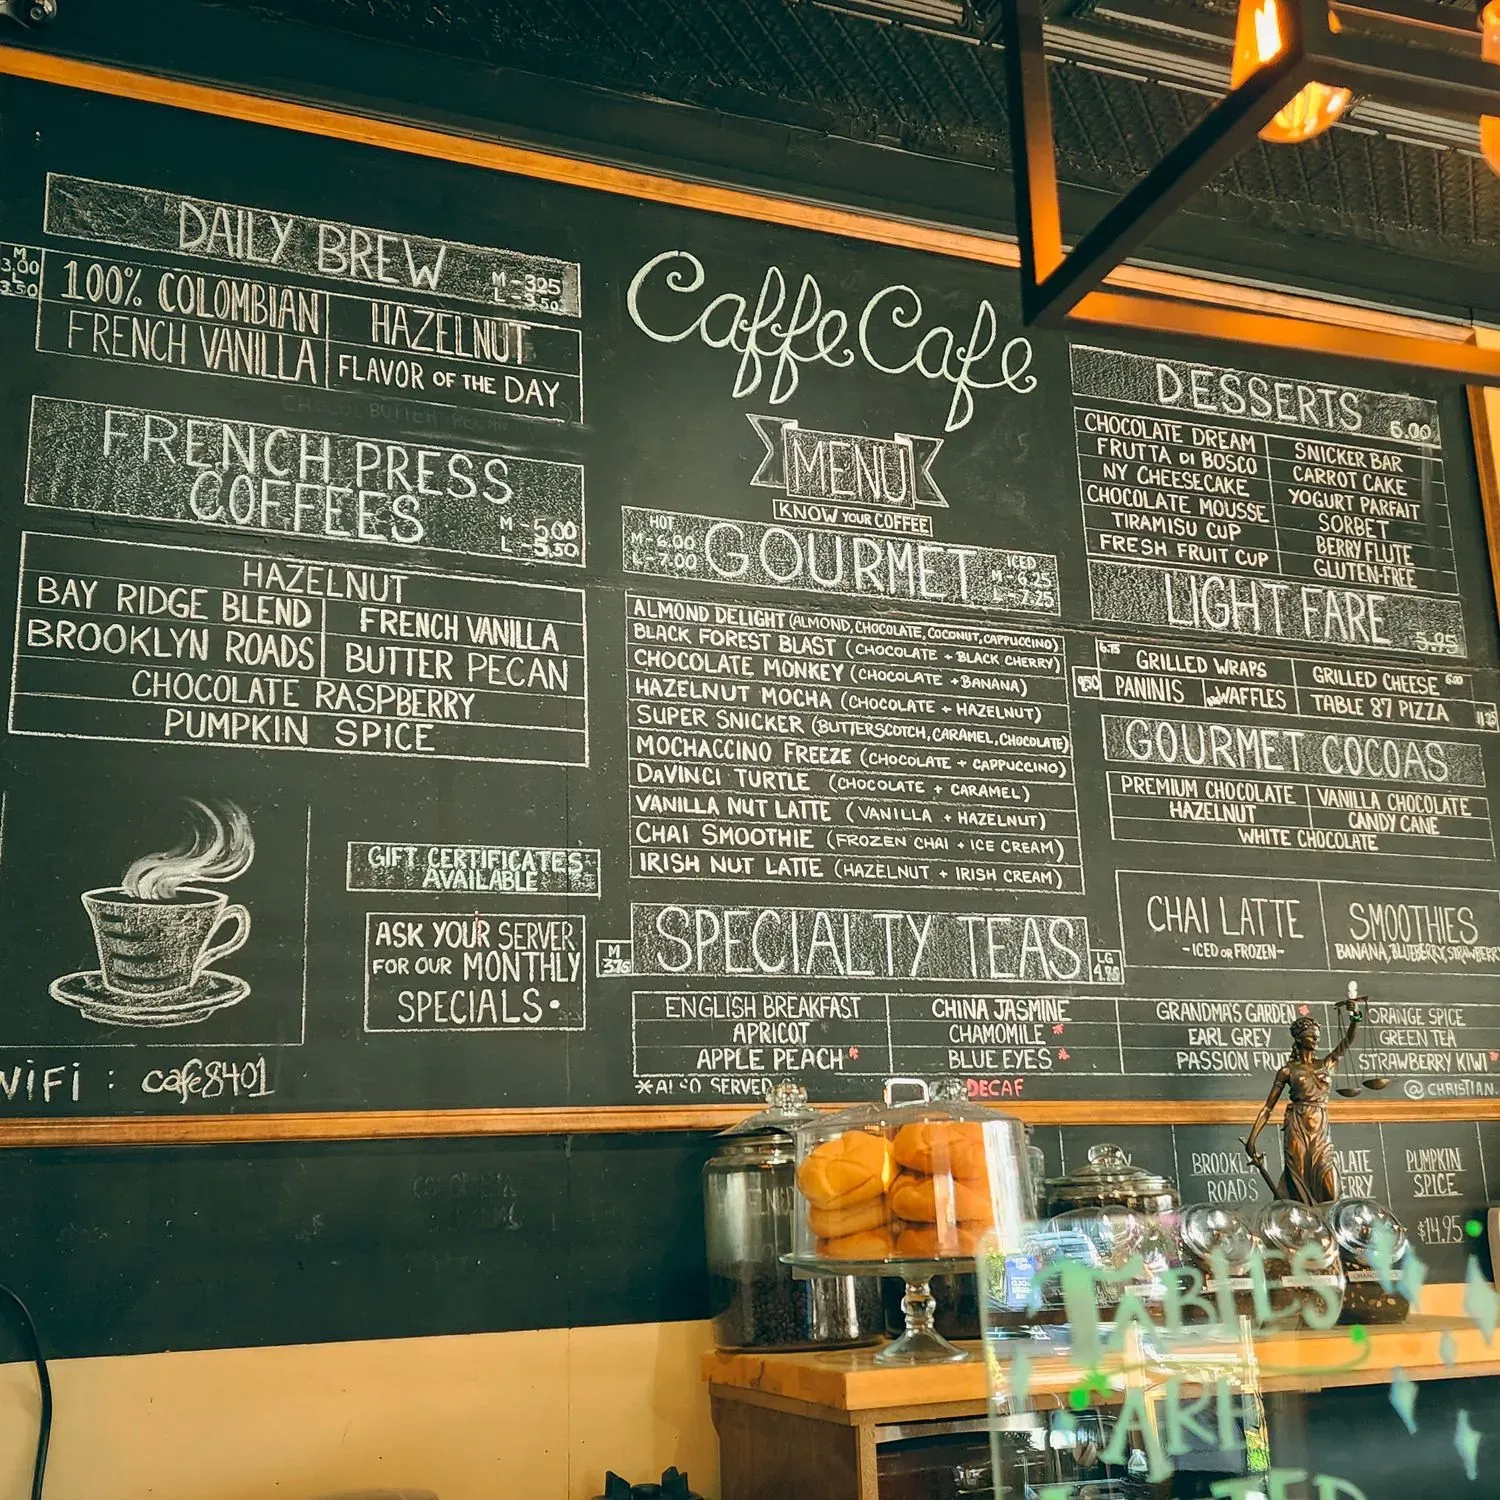 DAILY BREW
M - 3.25
L - 3.50
M
3.00
L
3.50
100% COLOMBIAN
HAZELNUT
FRENCH VANILLA
FLAVOR OF THE DAY
FRENCH PRESS
COFFEES
M - 5.00
L - 5.50
HAZELNUT
BAY RIDGE BLEND
FRENCH VANILLA
BROOKLYN ROADS
BUTTER PECAN
CHOCOLATE RASPBERRY
PUMPKIN SPICE
GIFT CERTIFICATES
AVAILABLE
ASK YOUR SERVER
FOR OUR MONTHLY
SPECIALS •
WiFi : cafe8401
Caffe Cafe
MENU
KNOW YOUR COFFEE
HOT
M - 6.00
L - 7.00
GOURMET
ICED
M - 6.25
L - 7.25
ALMOND DELIGHT (ALMOND, CHOCOLATE, COCONUT, CAPPUCCINO)
BLACK FOREST BLAST (CHOCOLATE + BLACK CHERRY)
CHOCOLATE MONKEY (CHOCOLATE + BANANA)
HAZELNUT MOCHA (CHOCOLATE + HAZELNUT)
SUPER SNICKER (BUTTERSCOTCH, CARAMEL, CHOCOLATE)
MOCHACCINO FREEZE (CHOCOLATE + CAPPUCCINO)
DAVINCI TURTLE (CHOCOLATE + CARAMEL)
VANILLA NUT LATTE (VANILLA + HAZELNUT)
CHAI SMOOTHIE (FROZEN CHAI + ICE CREAM)
IRISH NUT LATTE (HAZELNUT + IRISH CREAM)
M
3.75
SPECIALTY TEAS
LG
4.75
ENGLISH BREAKFAST
CHINA JASMINE
GRANDMA'S GARDEN*
ORANGE SPICE
APRICOT
CHAMOMILE *
EARL GREY
GREEN TEA
APPLE PEACH *
BLUE EYES *
PASSION FRUIT
STRAWBERRY KIWI *
* ALSO SERVED
DECAF
@CHRISTIAN.
DESSERTS
6.00
CHOCOLATE DREAM
SNICKER BAR
FRUTTA DI BOSCO
CARROT CAKE
NY CHEESECAKE
YOGURT PARFAIT
CHOCOLATE MOUSSE
SORBET
TIRAMISU CUP
BERRY FLUTE
FRESH FRUIT CUP
GLUTEN-FREE
LIGHT FARE
5.95
6.75
GRILLED WRAPS
GRILLED CHEESE 6.00
9.50
PANINIS
WAFFLES
TABLE 87 PIZZA
GOURMET COCOAS
PREMIUM CHOCOLATE
VANILLA CHOCOLATE
HAZELNUT
CANDY CANE
WHITE CHOCOLATE
CHAI LATTE
- ICED OR FROZEN -
SMOOTHIES
BANANA, BLUEBERRY, STRAWBERRY
BROOKLYN
ROADS
PUMPKIN
SPICE
$14.95
TABLES
ARE